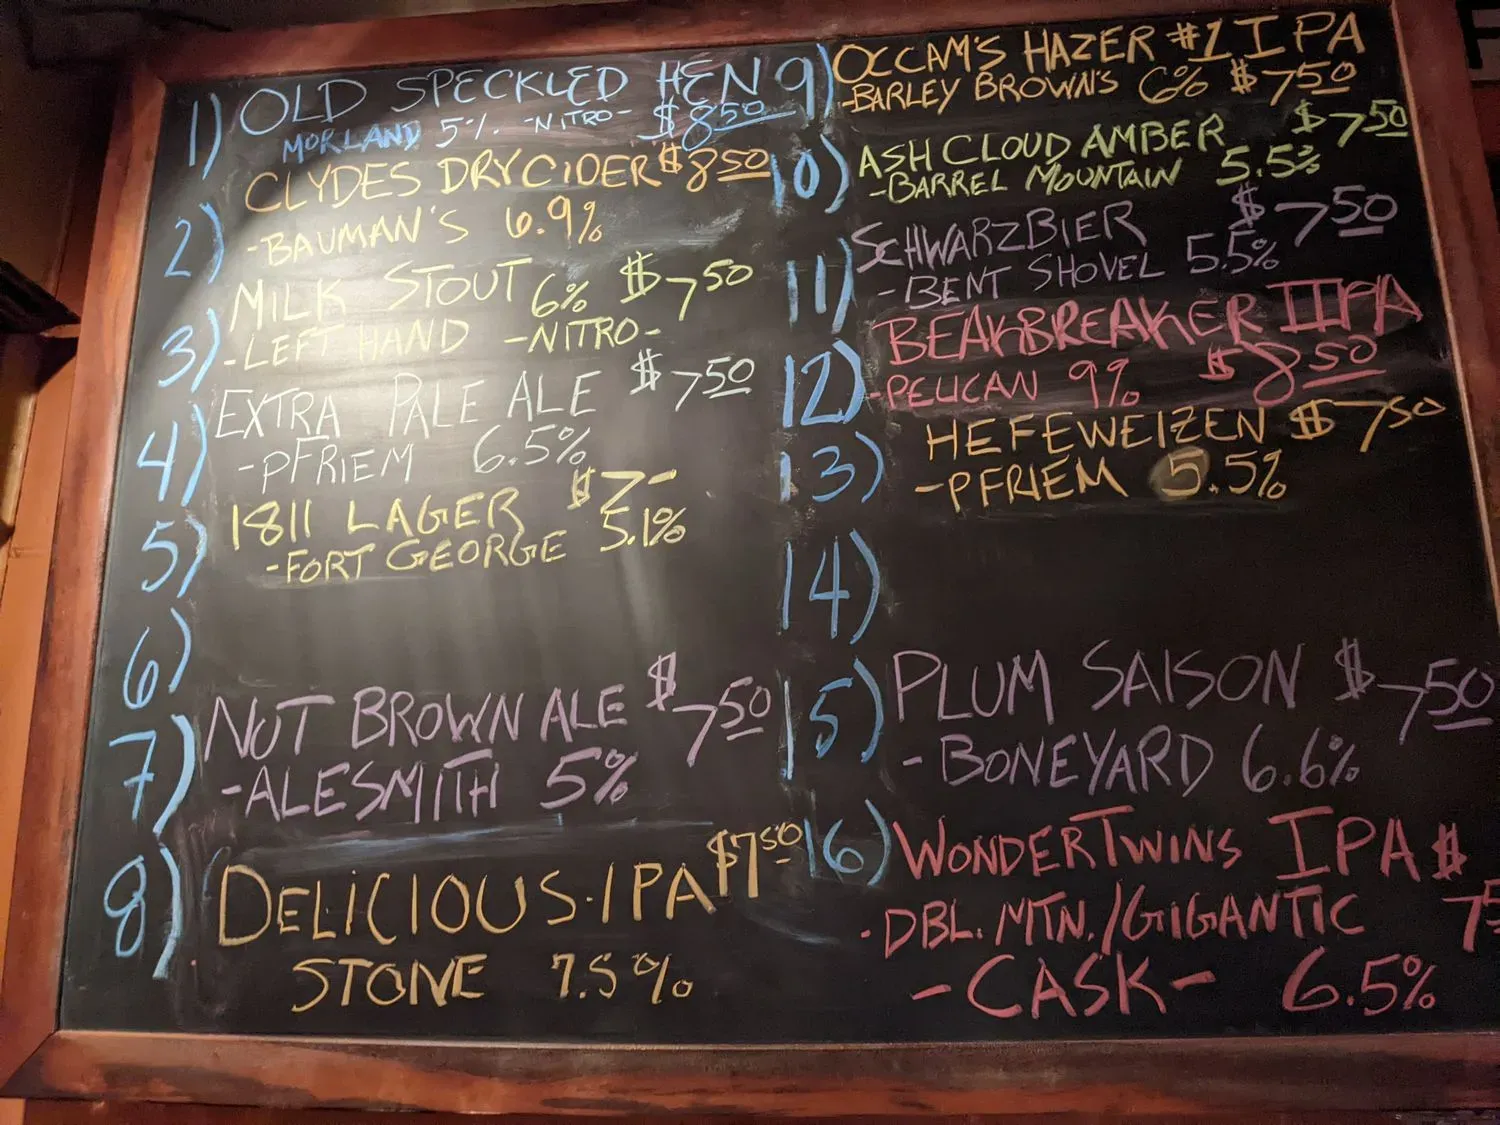 1) OLD SPECKLED HEN
MORLAND 5% -NITRO- $8 50
2) CLYDES DRY CIDER $8 50
-BAUMAN'S 6.9%
3) MILK STOUT 6% $7 50
-LEFT HAND -NITRO-
4) EXTRA PALE ALE $7 50
-PFRIEM 6.5%
5) 1811 LAGER $7-
-FORT GEORGE 5.1%
6)
7) NUT BROWN ALE $7 50
-ALESMITH 5%
8) DELICIOUS·IPA $7 50
STONE 7.5%
9) OCCAM'S HAZER #1 IPA
-BARLEY BROWN'S 6% $7 50
10) ASH CLOUD AMBER $7 50
-BARREL MOUNTAIN 5.5%
11) SCHWARZBIER $7 50
-BENT SHOVEL 5.5%
12) BEAKBREAKER IIPA
-PELICAN 9% $8 50
13) HEFEWEIZEN $7 50
-PFRIEM 5.5%
14)
15) PLUM SAISON $7 50
-BONEYARD 6.6%
16) WONDERTWINS IPA $
-DBL. MTN./GIGANTIC 75
-CASK- 6.5%